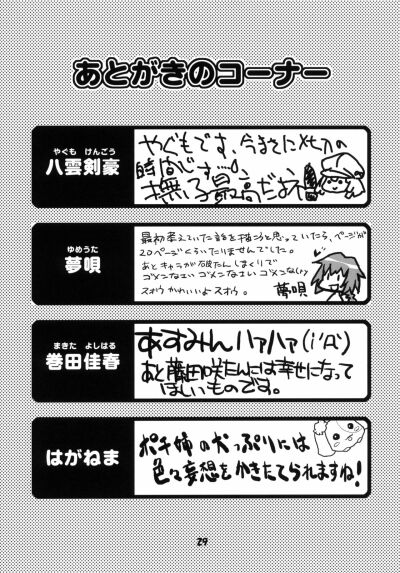 あとがきのコーナー
やぐも けんごう
八雲剣豪
やぐもです、今まさに
時間です…。
撫子最高だよね
ゆめうた
夢唄
最初考えていた話を描こうと思っていたら、ページが
20ページくらいたりませんでした。
あとキャラが破たんしまくりで
ゴメンなさい ゴメンなさい ゴメンなさい
スオウ かわいいよ スオウ。
夢唄
まきた よしはる
巻田佳春
あすみんハァハァ(;´Д`)
あと藤田咲たんには幸せになって
ほしいものです。
はがねま
ポチ姉の犬っぷりには
色々妄想をかきたてられますね!
29